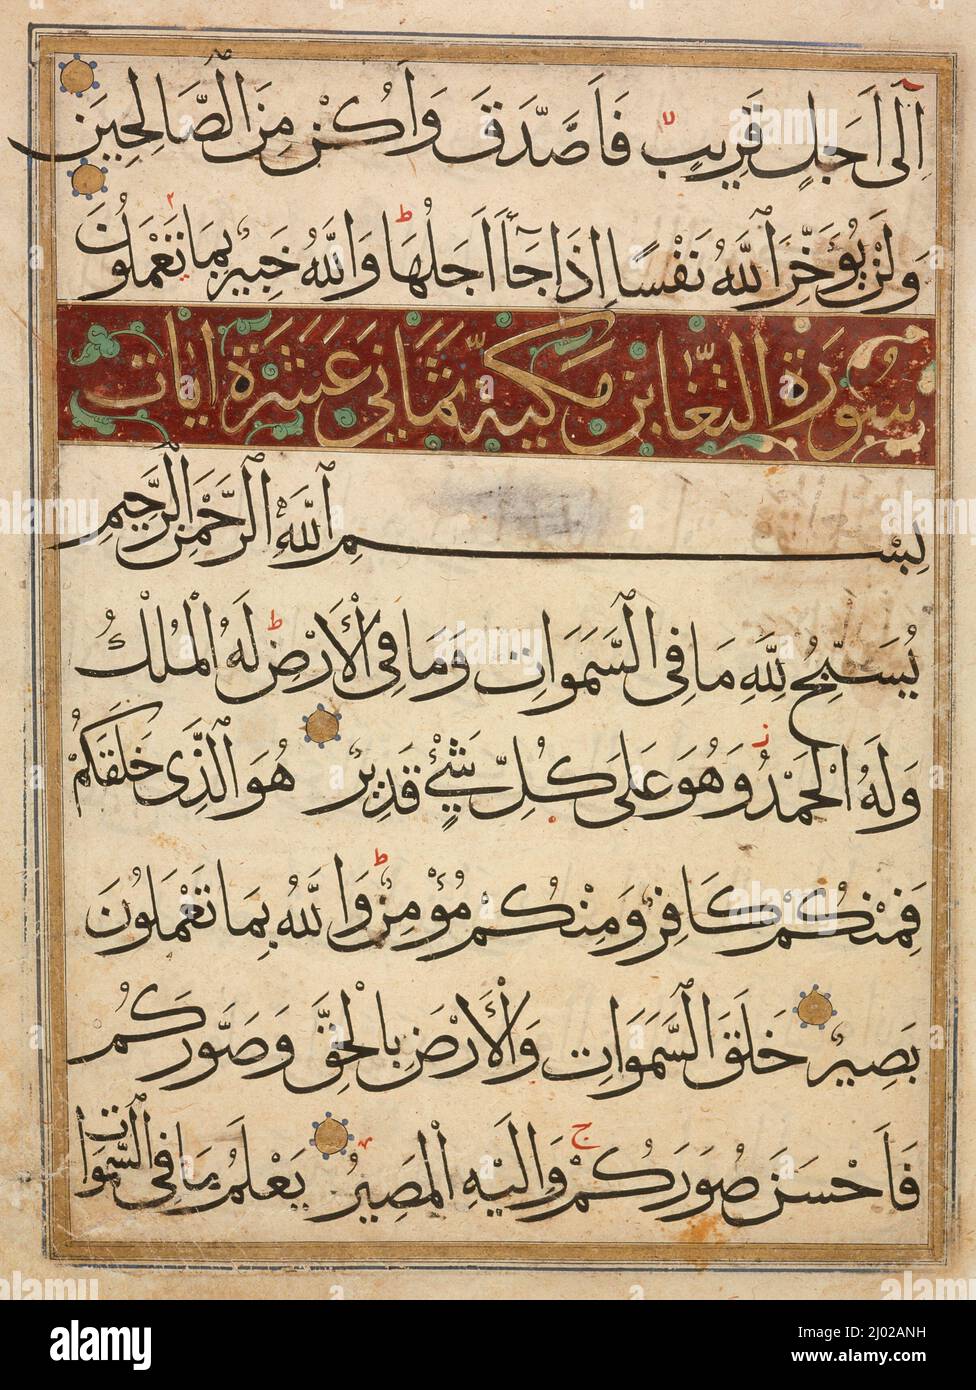 اِلٰى اَجَلٍ قَرِيبٍ فَاَصَّدَّقَ وَاَكُنْ مِنَ الصَّالِحِينَ
وَلَنْ يُؤَخِّرَ اللهُ نَفْسًا اِذَا جَآءَ اَجَلُهَا وَاللهُ خَبِيرٌ بِمَا تَعْمَلُونَ
سُورَةُ التَّغَابُنِ مَكِّيَّةٌ ثَمَانِي عَشْرَةَ اٰيَات
بِسْمِ اللهِ الرَّحْمٰنِ الرَّحِيمِ
يُسَبِّحُ لِلّٰهِ مَا فِي السَّمٰوَاتِ وَمَا فِي الْاَرْضِ لَهُ الْمُلْكُ
وَلَهُ الْحَمْدُ وَهُوَ عَلٰى كُلِّ شَيْءٍ قَدِيرٌ هُوَ الَّذِي خَلَقَكُمْ
فَمِنْكُمْ كَافِرٌ وَمِنْكُمْ مُؤْمِنٌ وَاللهُ بِمَا تَعْمَلُونَ
بَصِيرٌ خَلَقَ السَّمٰوَاتِ وَالْاَرْضَ بِالْحَقِّ وَصَوَّرَكُمْ
فَاَحْسَنَ صُوَرَكُمْ وَاِلَيْهِ الْمَصِيرُ يَعْلَمُ مَا فِي السَّمٰوَاتِ
alamy
Image ID: 2J02ANH
www.alamy.com